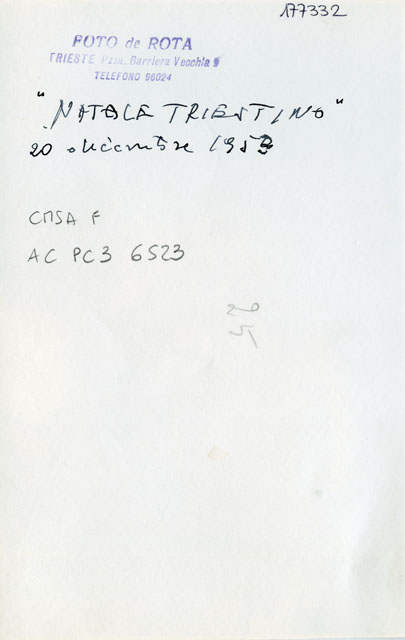 177332
FOTO de ROTA
TRIESTE P.zza. Barriera Vecchia 9
TELEFONO 96024
"NATALE TRIESTINO"
20 dicembre 1953
CMSA F
AC PC3 6523